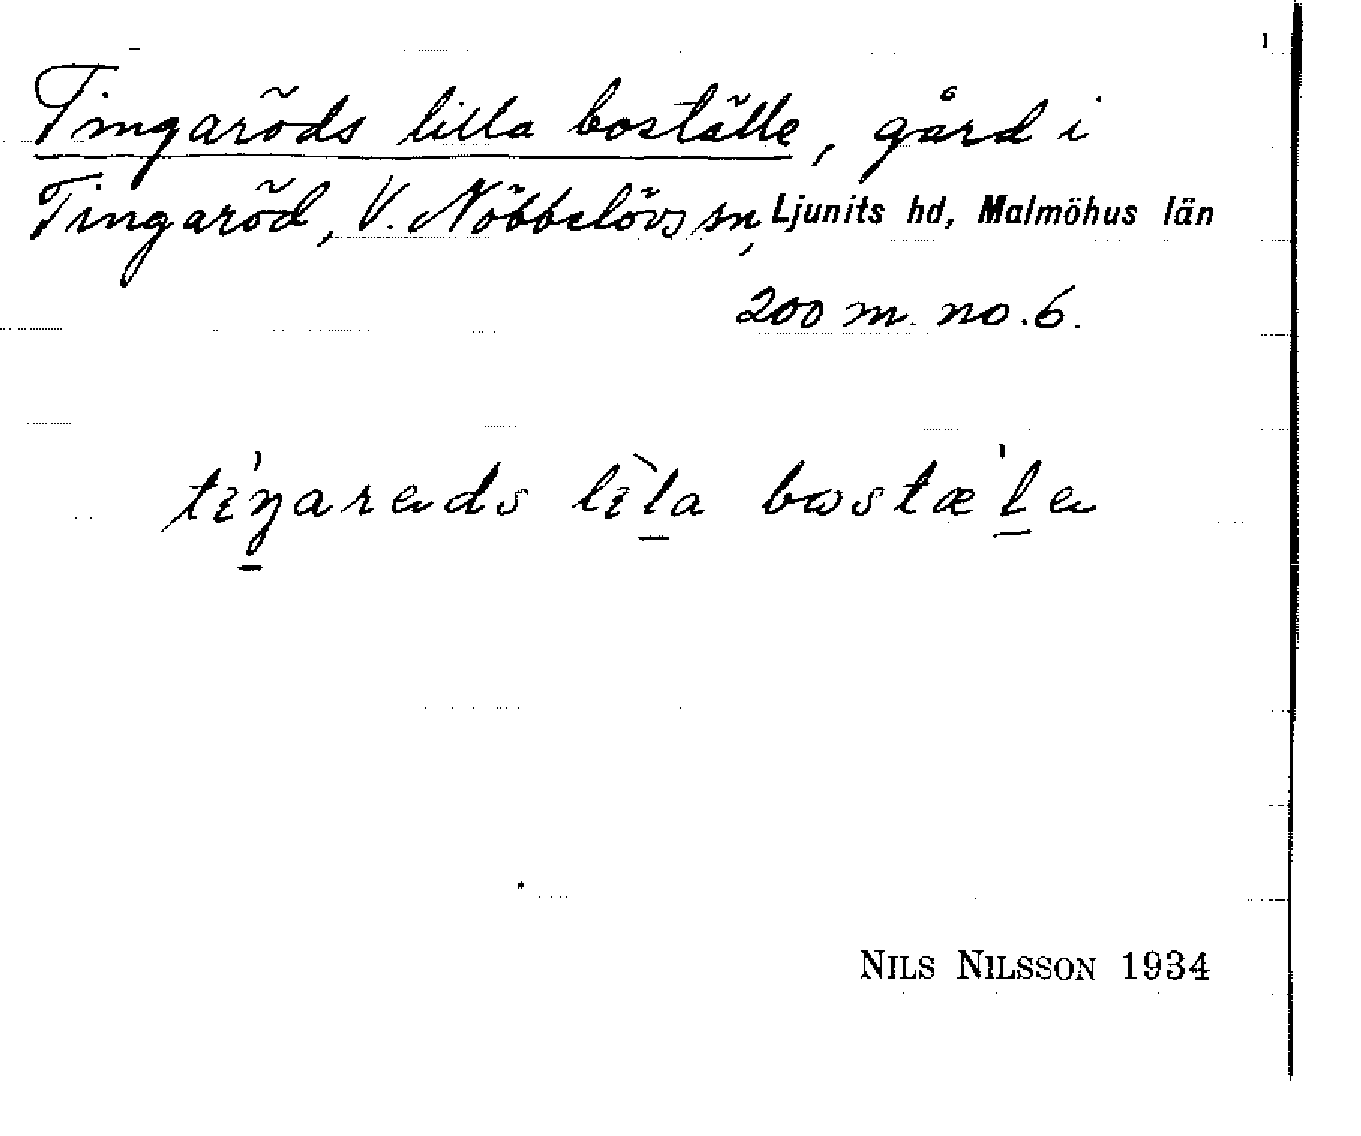 Tingaröds lilla boställe, gård i
Tingaröd, V. Nöbbelövs sn, Ljunits hd, Malmöhus län
200 m. no. 6.
tiŋarəds lila bostælə
NILS NILSSON 1934